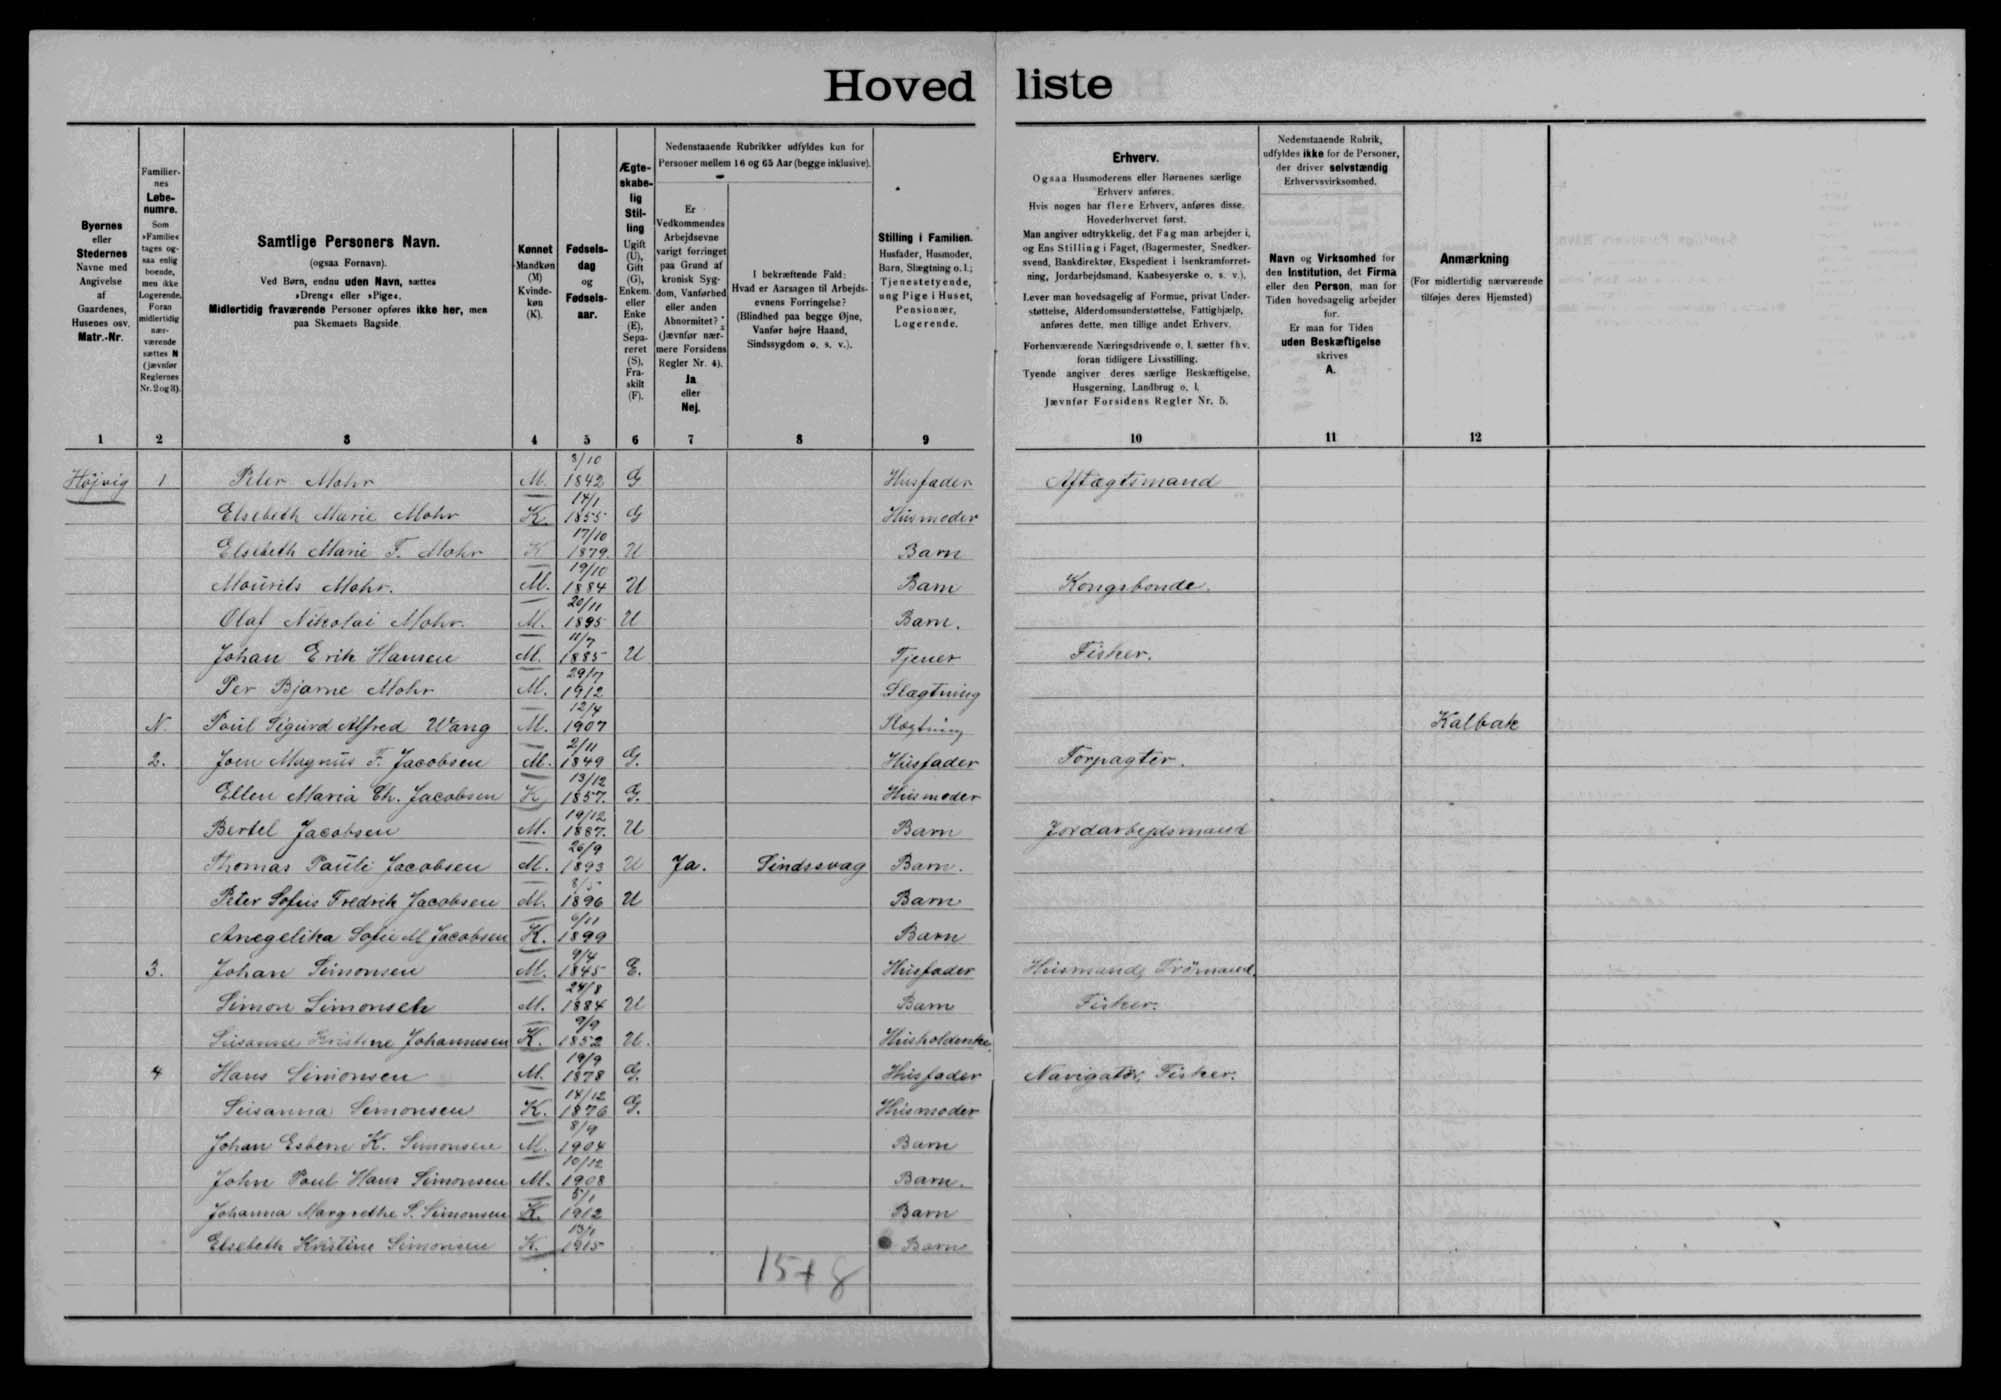 Hoved liste
Byernes eller Stedernes Navne med Angivelse af Gaardenes, Husenes osv. Matr.-Nr.
Familiernes Løbenumre. Som »Familie« tages ogsaa enlig boende, men ikke Logerende. Foran midlertidig nærværende sættes N (jævnfør Reglernes Nr. 2 og 3).
Samtlige Personers Navn. (ogsaa Fornavn). Ved Børn, endnu uden Navn, sættes »Dreng« eller »Pige«. Midlertidig fraværende Personer opføres ikke her, men paa Skemaets Bagside.
Kønnet Mandkøn (M) Kvindekøn (K).
Fødselsdag og Fødselsaar.
Ægteskabelig Stilling Ugift (U), Gift (G), Enkem. eller Enke (E), Separeret (S), Fraskilt (F).
Nedenstaaende Rubrikker udfyldes kun for Personer mellem 16 og 65 Aar (begge inklusive).
Er Vedkommendes Arbejdsevne varigt forringet paa Grund af kronisk Sygdom, Vanførhed eller anden Abnormitet? (Jævnfør nærmere Forsidens Regler Nr. 4). Ja eller Nej.
I bekræftende Fald: Hvad er Aarsagen til Arbejdsevnens Forringelse? (Blindhed paa begge Øjne, Vanfør højre Haand, Sindssygdom o. s. v.).
Stilling i Familien. Husfader, Husmoder, Barn, Slægtning o. l.; Tjenestetyende, ung Pige i Huset, Pensionær, Logerende.
Erhverv.
Ogsaa Husmoderens eller Børnenes særlige Erhverv anføres.
Hvis nogen har flere Erhverv, anføres disse. Hovederhvervet først.
Man angiver udtrykkelig, det Fag man arbejder i, og Ens Stilling i Faget, (Bagermester, Snedkersvend, Bankdirektør, Ekspedient i Isenkramforretning, Jordarbejdsmand, Kaabesyerske o. s. v.).
Lever man hovedsagelig af Formue, privat Understøttelse, Alderdomsunderstøttelse, Fattighjælp, anføres dette, men tillige andet Erhverv.
Forhenværende Næringsdrivende o. l. sætter fhv. foran tidligere Livsstilling.
Tyende angiver deres særlige Beskæftigelse, Husgerning, Landbrug o. l.
Jævnfør Forsidens Regler Nr. 5.
Nedenstaaende Rubrik, udfyldes ikke for de Personer, der driver selvstændig Erhvervsvirksomhed.
Navn og Virksomhed for den Institution, det Firma eller den Person, man for Tiden hovedsagelig arbejder for. Er man for Tiden uden Beskæftigelse skrives A.
Anmærkning (For midlertidig nærværende tilføjes deres Hjemsted)
1 2 3 4 5 6 7 8 9 10 11 12
Højvig 1 Peter Mohr M. 3/10 1842 G Husfader Aftægtsmand
Elsebeth Marie Mohr K. 14/1 1855 G Husmoder
Elsebeth Marie F. Mohr K 17/10 1879. U Barn
Mourits Mohr. M. 19/10 1884 U Barn Kongsbonde.
Olaf Nikolai Mohr. M. 20/11 1895 U Barn.
Johan Erik Hansen M. 11/7 1885 U Tjener Fisker.
Per Bjarne Mohr M. 29/7 1912 Slægtning
N. Poul Sigurd Alfred Wang M. 12/4 1907 Slægtning Kalbak
2. Joen Magnus F. Jacobsen M. 2/11 1849 G. Husfader Forpagter.
Ellen Maria Th. Jacobsen K 13/12 1857. G. Husmoder
Bertel Jacobsen M. 19/12 1887. U Barn Jordarbejdsmand
Thomas Pauli Jacobsen M. 26/9 1893 U Ja. Sindssvag Barn.
Peter Sofus Fredrik Jacobsen M. 8/5 1896 U Barn
Anegelika Sofie M Jacobsen K. 6/11 1899 Barn
3. Johan Simonsen M. 9/4 1845 E. Husfader Husmand,
Simon Simonsen M. 24/8 1884 U Barn Fisker.
Susanne Kristine Johannesen K. 9/9 1852 U.
4 Hans Simonsen M. 19/9 1878 G. Husfader Navigatør, Fisker.
Susanna Simonsen K. 14/12 1876 G. Husmoder
Johan Esbern K. Simonsen M. 8/9 1904 Barn
John Poul Hans Simonsen M. 10/12 1908 Barn.
Johanna Margrethe S. Simonsen K. 5/1 1912 Barn
Elsebeth Kristine Simonsen K. 13/1 1915 Barn
15+8